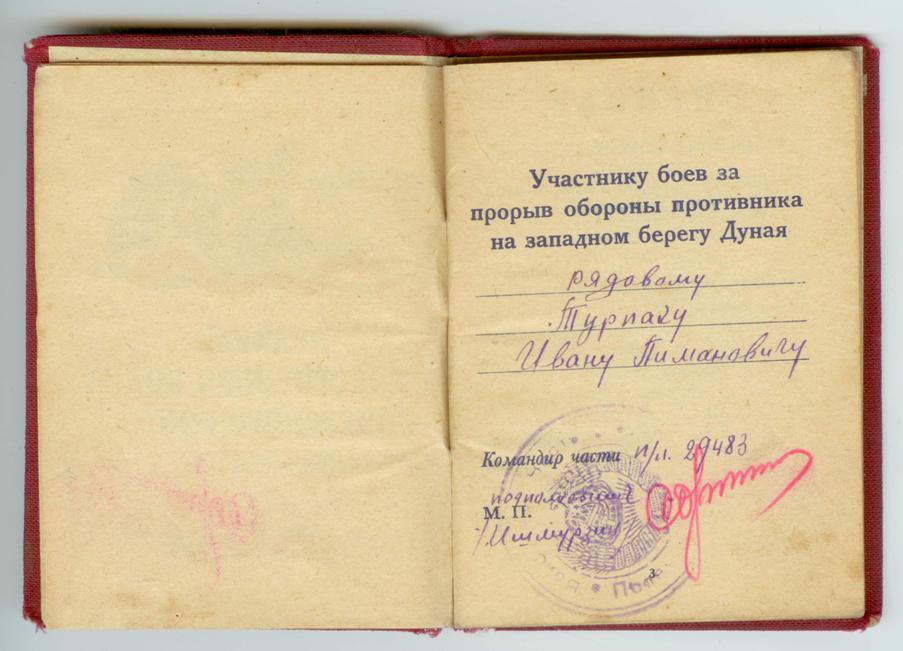 Участнику боев за
прорыв обороны противника
на западном берегу Дуная
рядовому
Турпаку
Ивану Пимановичу
Командир части п/п. 29483
подполковник
М. П.
3